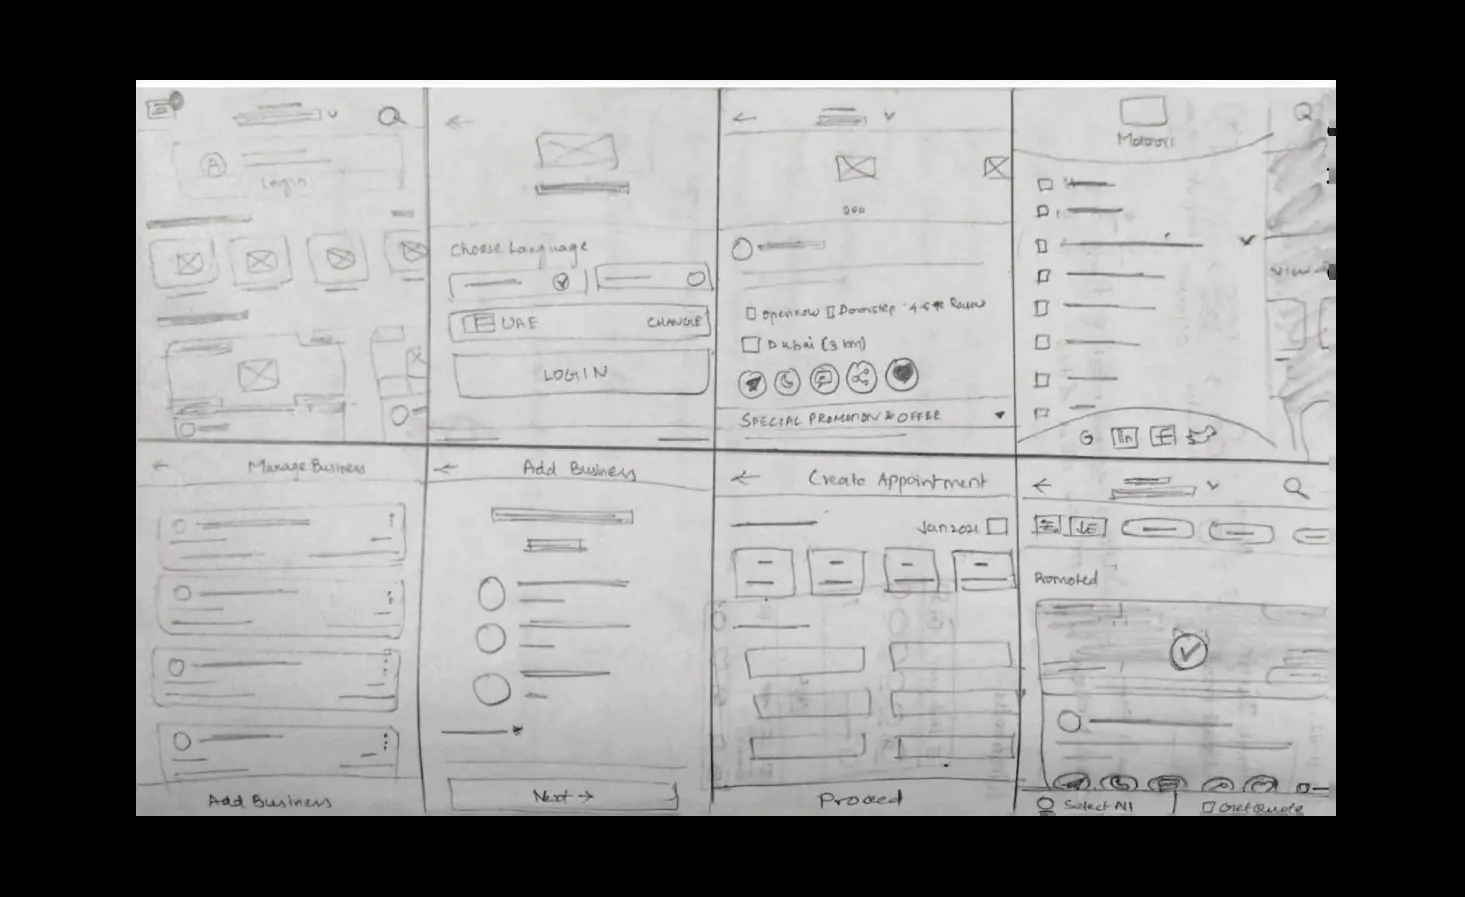 Login
Choose Language
UAE CHANGE
LOGIN
open now Doorstep 4.5 * Review
Dubai (3 km)
SPECIAL PROMOTION & OFFER
Motors
View
G in f
Manage Business
Add Business
Add Business
Next →
Create Appointment
Jan 2021
Proceed
Promoted
Select All Get Quote